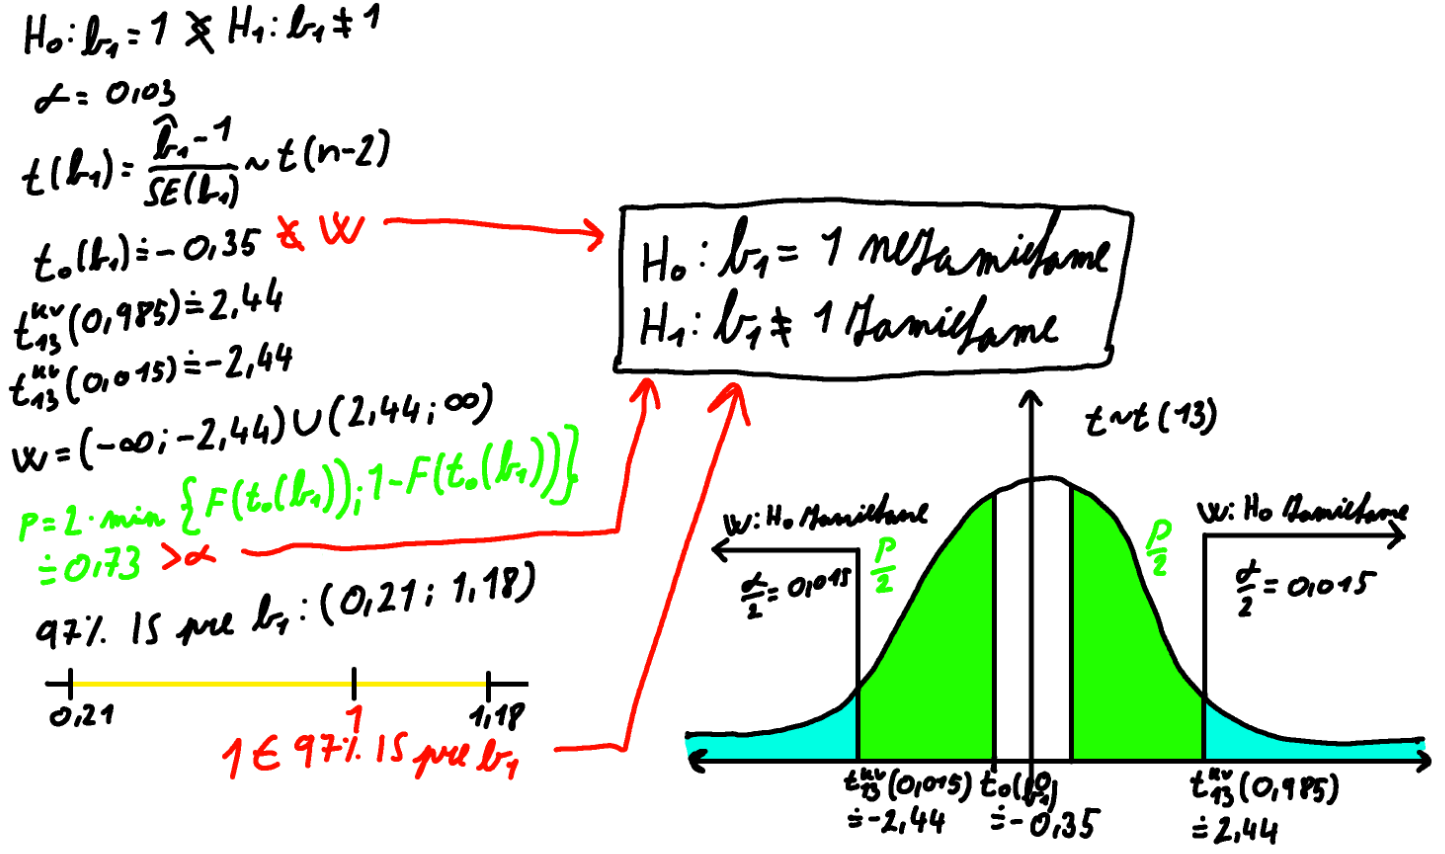 H₀: b₁ = 1 × H₁: b₁ ≠ 1
α = 0,03
t(b₁) = (b̂₁ - 1) / SE(b₁) ~ t(n-2)
t₀(b₁) ≐ - 0,35 ∉ W
t₁₃ᵏᵛ(0,985) ≐ 2,44
t₁₃ᵏᵛ(0,015) ≐ -2,44
W = (-∞; -2,44) ∪ (2,44; ∞)
P = 2 · min {F(t₀(b₁)); 1 - F(t₀(b₁))}
≐ 0,73 > α
97% IS pre b₁: (0,21; 1,18)
0,21 1 1,18
1 ∈ 97% IS pre b₁
H₀: b₁ = 1 nezamietame
H₁: b₁ ≠ 1 zamietame
t ~ t(13)
W: H₀ zamietame
α/2 = 0,015
P/2
P/2
W: H₀ zamietame
α/2 = 0,015
t₁₃ᵏᵛ(0,015) t₀(b₁) 0 t₁₃ᵏᵛ(0,985)
≐ -2,44 ≐ - 0,35 ≐ 2,44